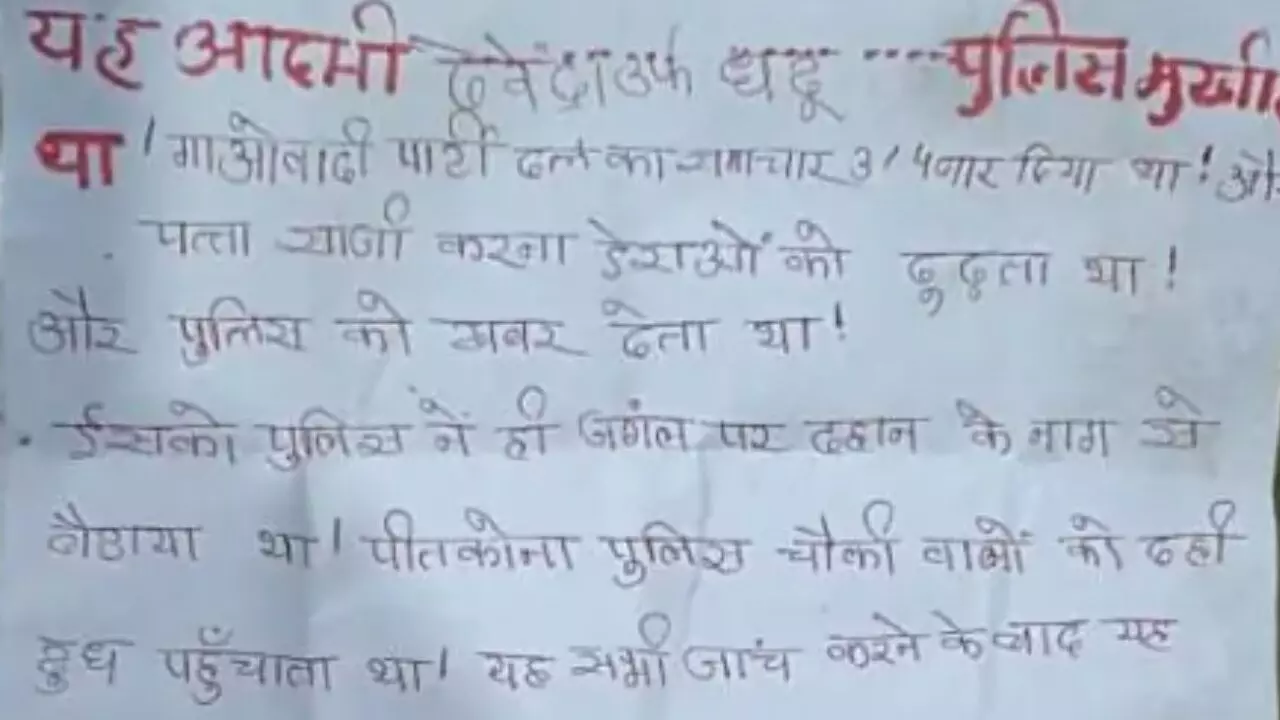 यह आदमी देवेंद्रा उर्फ धदू ---- पुलिस मुर्खा
था! माओवादी पार्टी दल का समाचार 3/4 बार दिया था! औ
पत्ता साजी करना डेराओं को ढूढ़ता था!
और पुलिस को खबर देता था!
. ईसको पुलिस नें ही जगंल पर दहान के नाग से
बैठाया था! पीतकोना पुलिस चौकी वालों को दही
दुध पहुँचाता था! यह सभी जांच करने के बाद यह